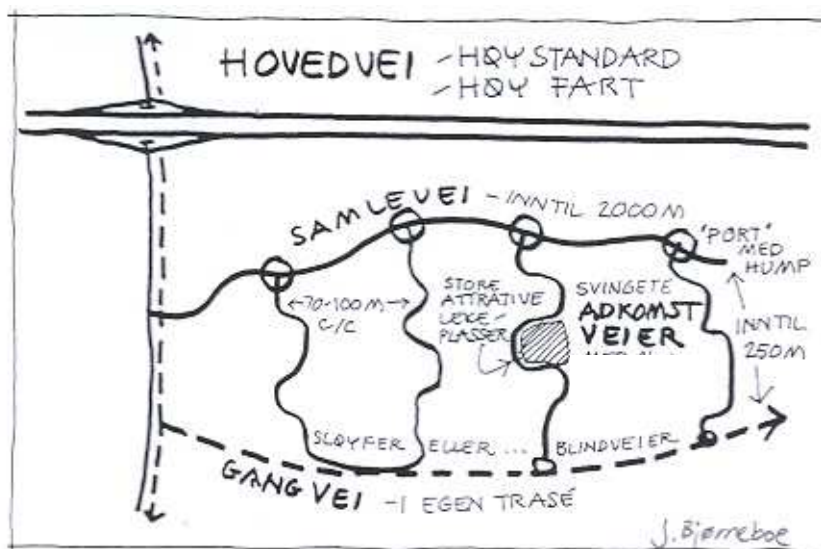 HOVEDVEI
- HØY STANDARD
- HØY FART
SAMLEVEI - INNTIL 2000 M
"PORT"
MED
HUMP
70-100 M
C/C
STORE
ATTRATIVE
LEKE-
PLASSER
SVINGETE
ADKOMST
VEIER
INNTIL
250 M
SLØYFER ELLER ... BLINDVEIER
GANGVEI - I EGEN TRASÉ
J. Bjørneboe